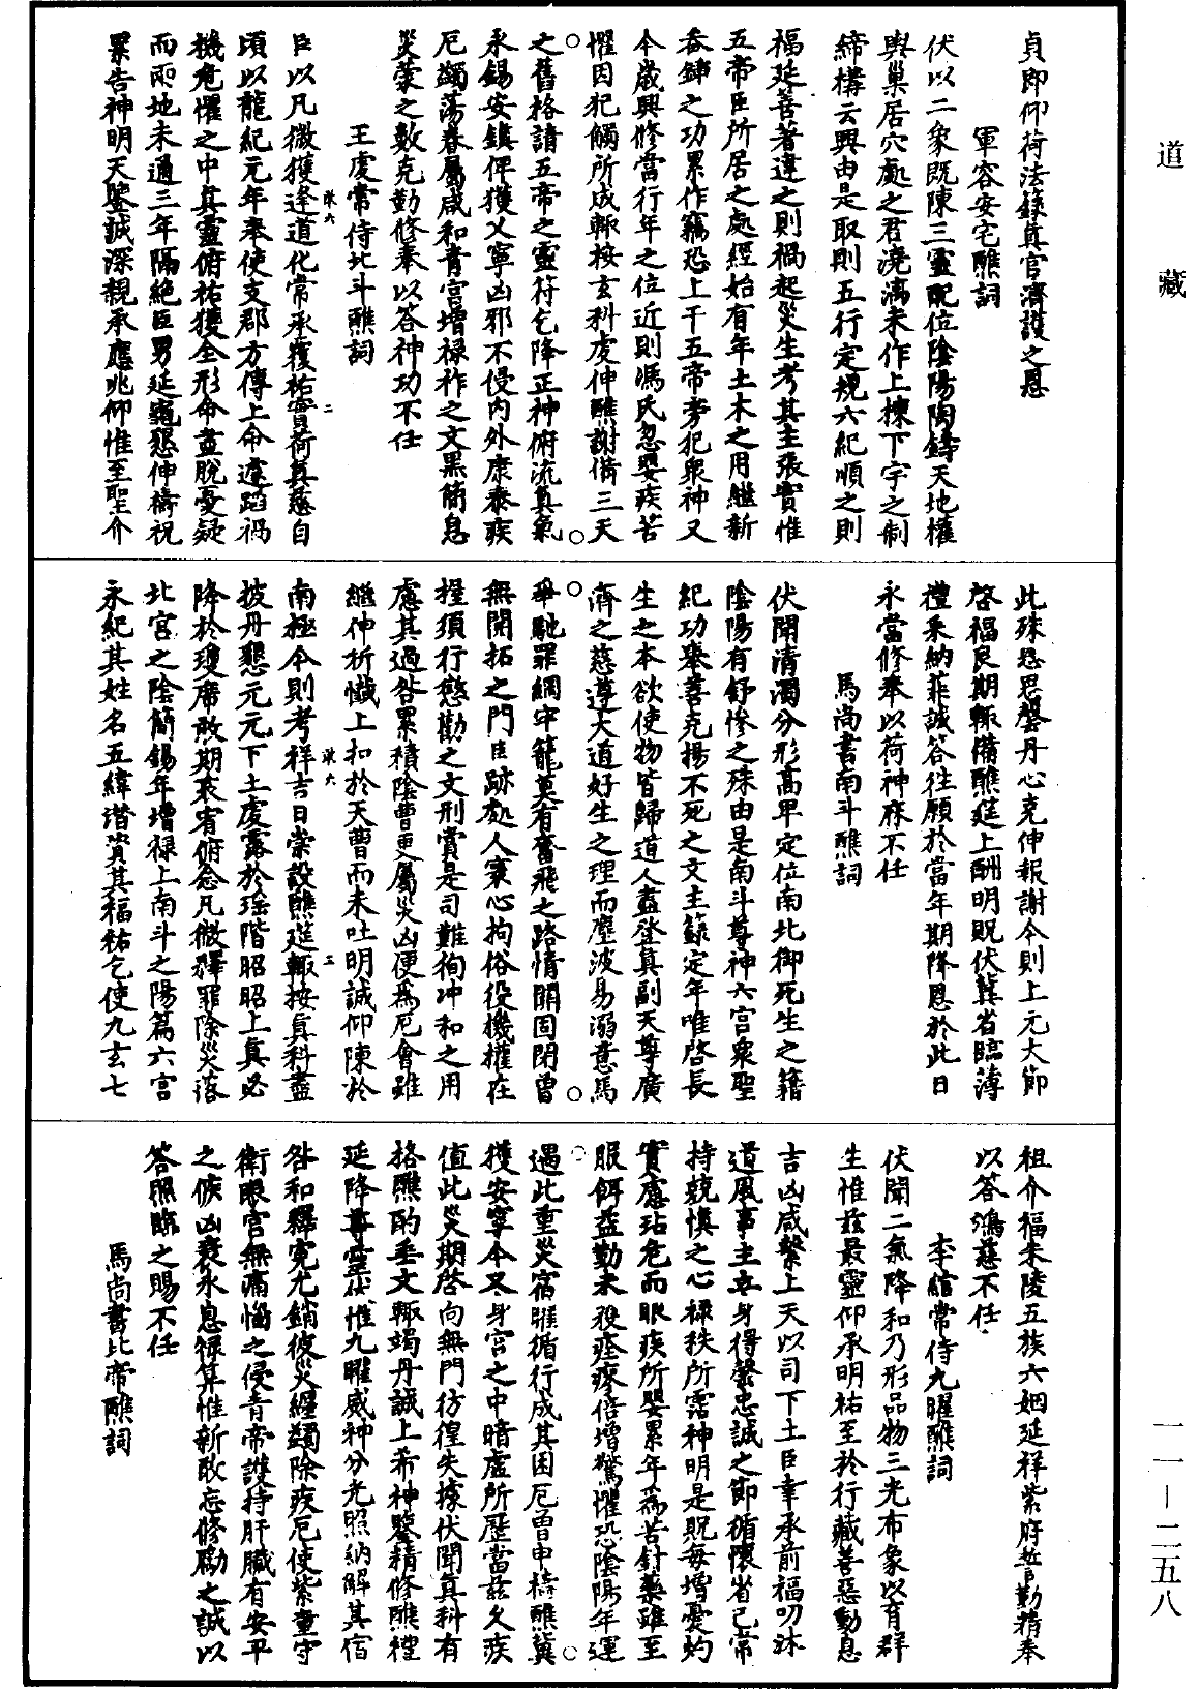 道藏
貞即仰荷法籙真官濟護之恩
軍容安宅醮詞
伏以二象既陳三靈配位陰陽陶鑄天地權
輿巢居穴處之君澆漓未作上棟下宇之制
締構云興由是取則五行定規六紀順之則
福延善著違之則禍起災生考其主張實惟
五帝臣所居之處經始有年土木之用繼新
畚鍤之功累作竊恐上干五帝旁犯衆神又
今歲興修當行年之位近則馮氏忽嬰疾苦
懼因犯觸所成輙按玄科虔伸醮謝備三天
之舊格請五帝之靈符乞降正神俯流真氣
永錫安鎮俾獲乂寧凶邪不侵内外康泰疾
厄蠲蕩眷屬咸和青宮增祿祚之文黑簡息
災蒙之數克勤修奉以答神功不任
王虔常侍北斗醮詞
臣以凡微獲逢道化常承覆祐實荷真慈自
頃以龍紀元年奉使支郡方傳上命遽蹈禍
機危懼之中真靈俯祐獲全形命益脫憂疑
而兩地未通三年隔絶臣男延龜懇伸禱祝
累告神明天鑒誠深親承應兆仰惟至聖介
此殊恩思罄丹心克伸報謝今則上元大節
啓福良期輙備醮筵上酬明貺伏冀省臨薄
禮采納菲誠答往願於當年期降恩於此日
永當修奉以荷神庥不任
馬尚書南斗醮詞
伏聞清濁分形高卑定位南北御死生之籍
陰陽有舒慘之殊由是南斗尊神六宮衆聖
紀功舉善克揚不死之文主籙定年唯啓長
生之本欲使物皆歸道人盡登真副天尊廣
濟之慈遵大道好生之理而塵波易溺意馬
爭馳罪網牢籠莫有奮飛之路情關固閉曾
無開拓之門臣跡處人寰心拘俗役機權在
握須行懲勸之文刑賞是司難徇冲和之用
慮其過咎累積陰曹更屬災凶便爲厄會雖
繼伸祈懺上扣於天曹而未吐明誠仰陳於
南極今則考祥吉日崇設醮筵輙按真科盡
披丹懇元元下土虔露於瑶階昭昭上真必
降於瓊席敢期哀宥俯念凡微釋罪除災落
北宮之陰簡錫年增祿上南斗之陽篇六宮
永紀其姓名五緯潜資其福祐乞使九玄七
祖介福朱陵五族六姻延祥紫府誓勤精奉
以答鴻慈不任
李綰常侍九曜醮詞
伏聞二氣降和乃形品物三光布象以育群
生惟茲最靈仰承明祐至於行藏善惡動息
吉凶咸繫上天以司下土臣幸承前福叨沐
道風事主立身得罄忠誠之節循懷省己常
持兢慎之心祿秩所霑神明是貺每增憂灼
實慮玷危而眼疾所嬰累年爲苦針藥雖至
服餌益勤未殄痊瘳倍增驚懼恐陰陽年運
遇此重災宿曜循行成其困厄曾申禱醮冀
獲安寧今又身宮之中暗虛所歷當茲久疾
值此災期啓向無門彷徨失據伏聞真科有
格醮酌垂文輙竭丹誠上希神鑒精修醮禮
延降尊靈伏惟九曜威神分光照納解其宿
咎和釋冤尤銷彼災纏蠲除疾厄使紫童守
衛眼宮無痛惱之侵青帝護持肝臟有安平
之候凶衰永息祿算惟新敢忘修勵之誠以
答照臨之賜不任
馬尚書北帝醮詞
一一—二五八